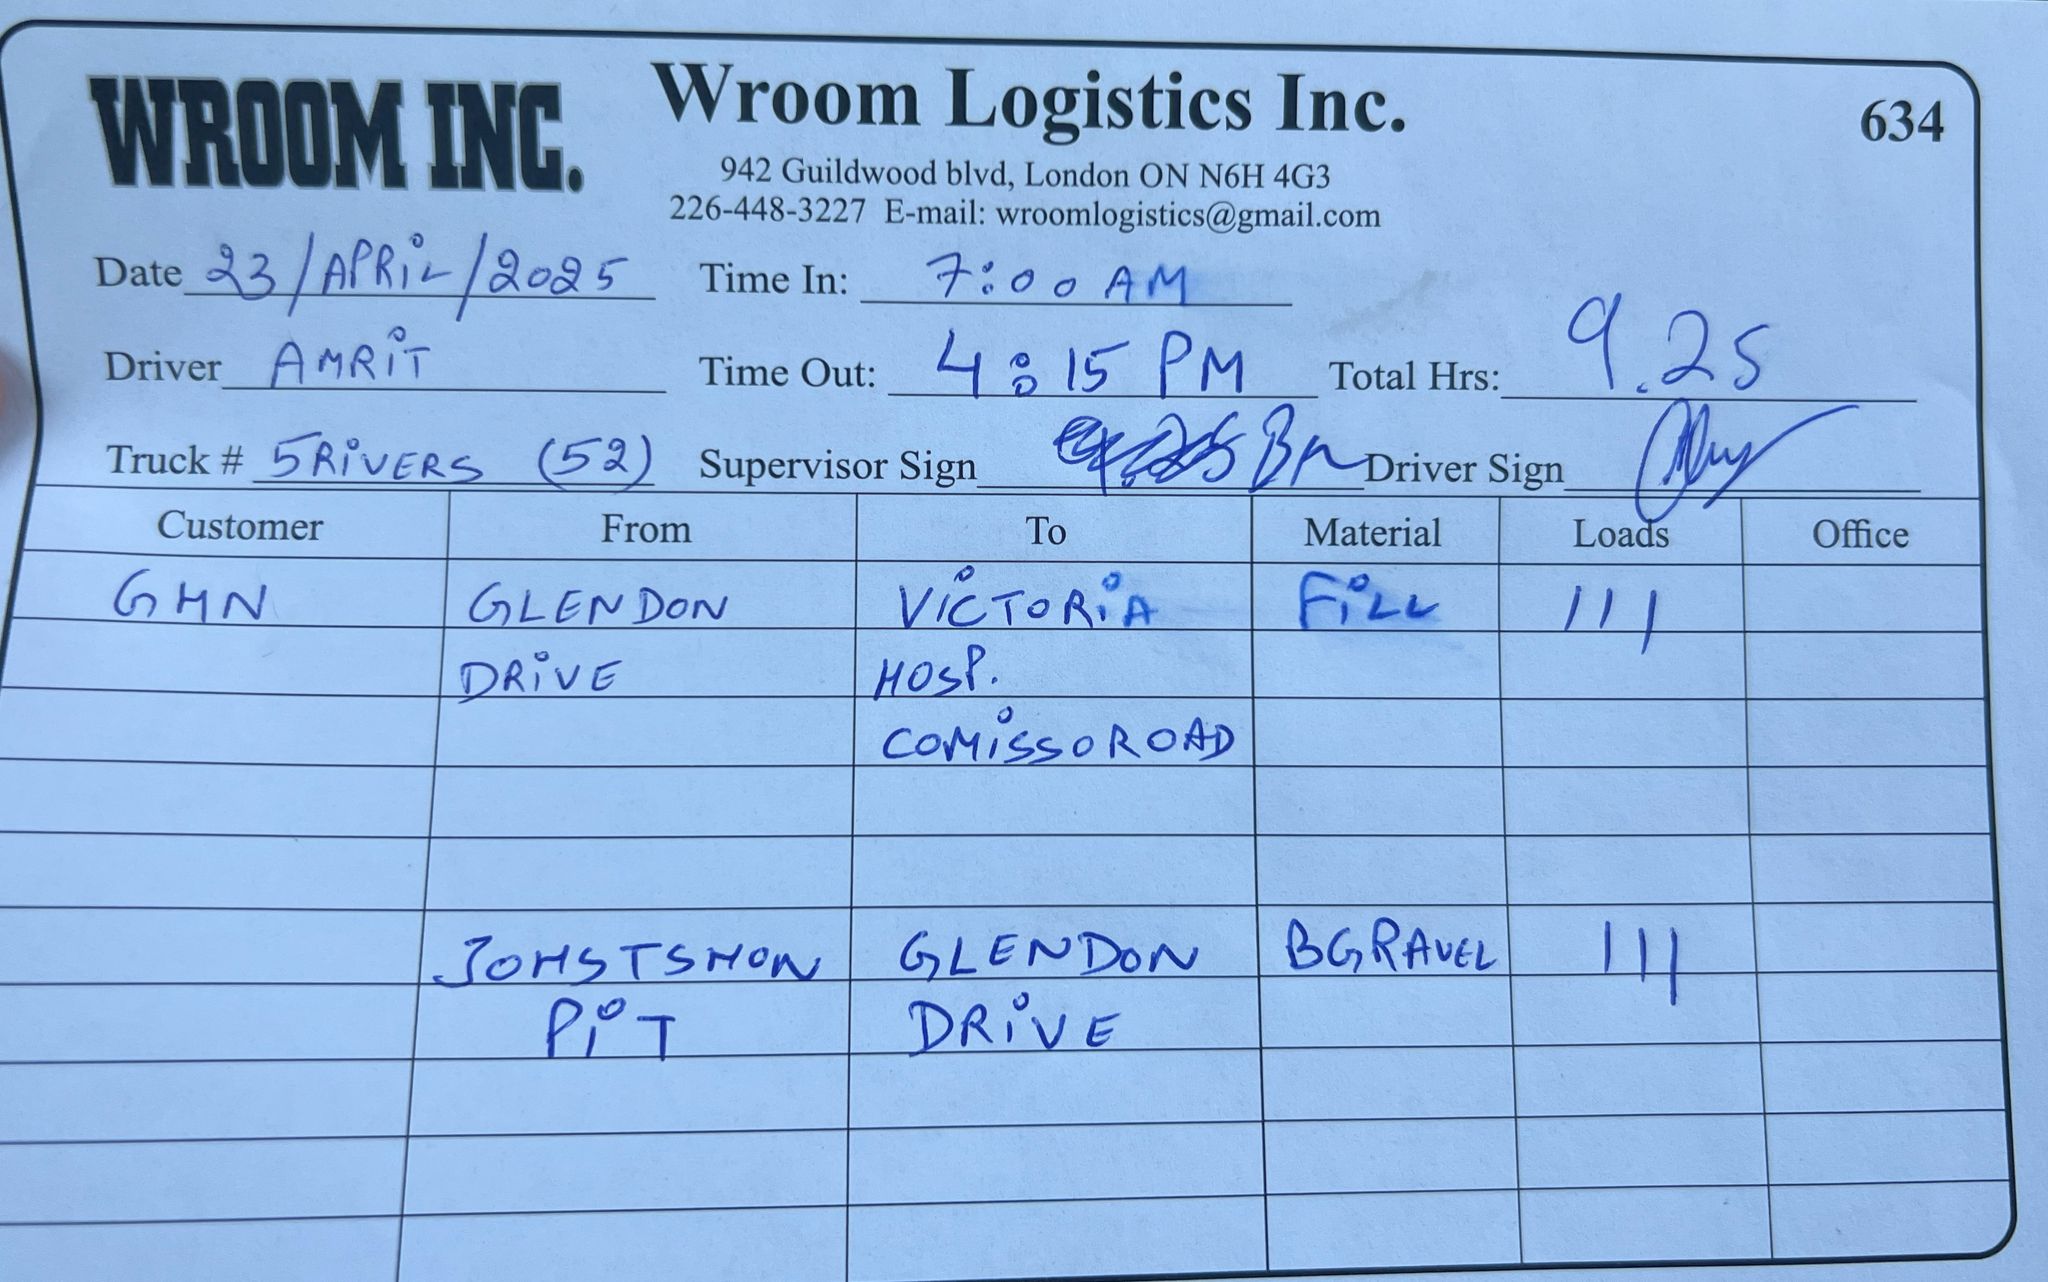 WROOM INC.
Wroom Logistics Inc.
634
942 Guildwood blvd, London ON N6H 4G3
226-448-3227 E-mail: wroomlogistics@gmail.com
Date 23/APRIL/2025 Time In: 7:00 AM
Driver AMRIT Time Out: 4:15 PM Total Hrs: 9.25
Truck # 5RIVERS (52) Supervisor Sign Driver Sign
Customer From To Material Loads Office
GHN GLENDON VICTORIA FILL III
DRIVE HOSP.
COMISSOROAD
JOHSTSHON GLENDON BGRAVEL III
PIT DRIVE